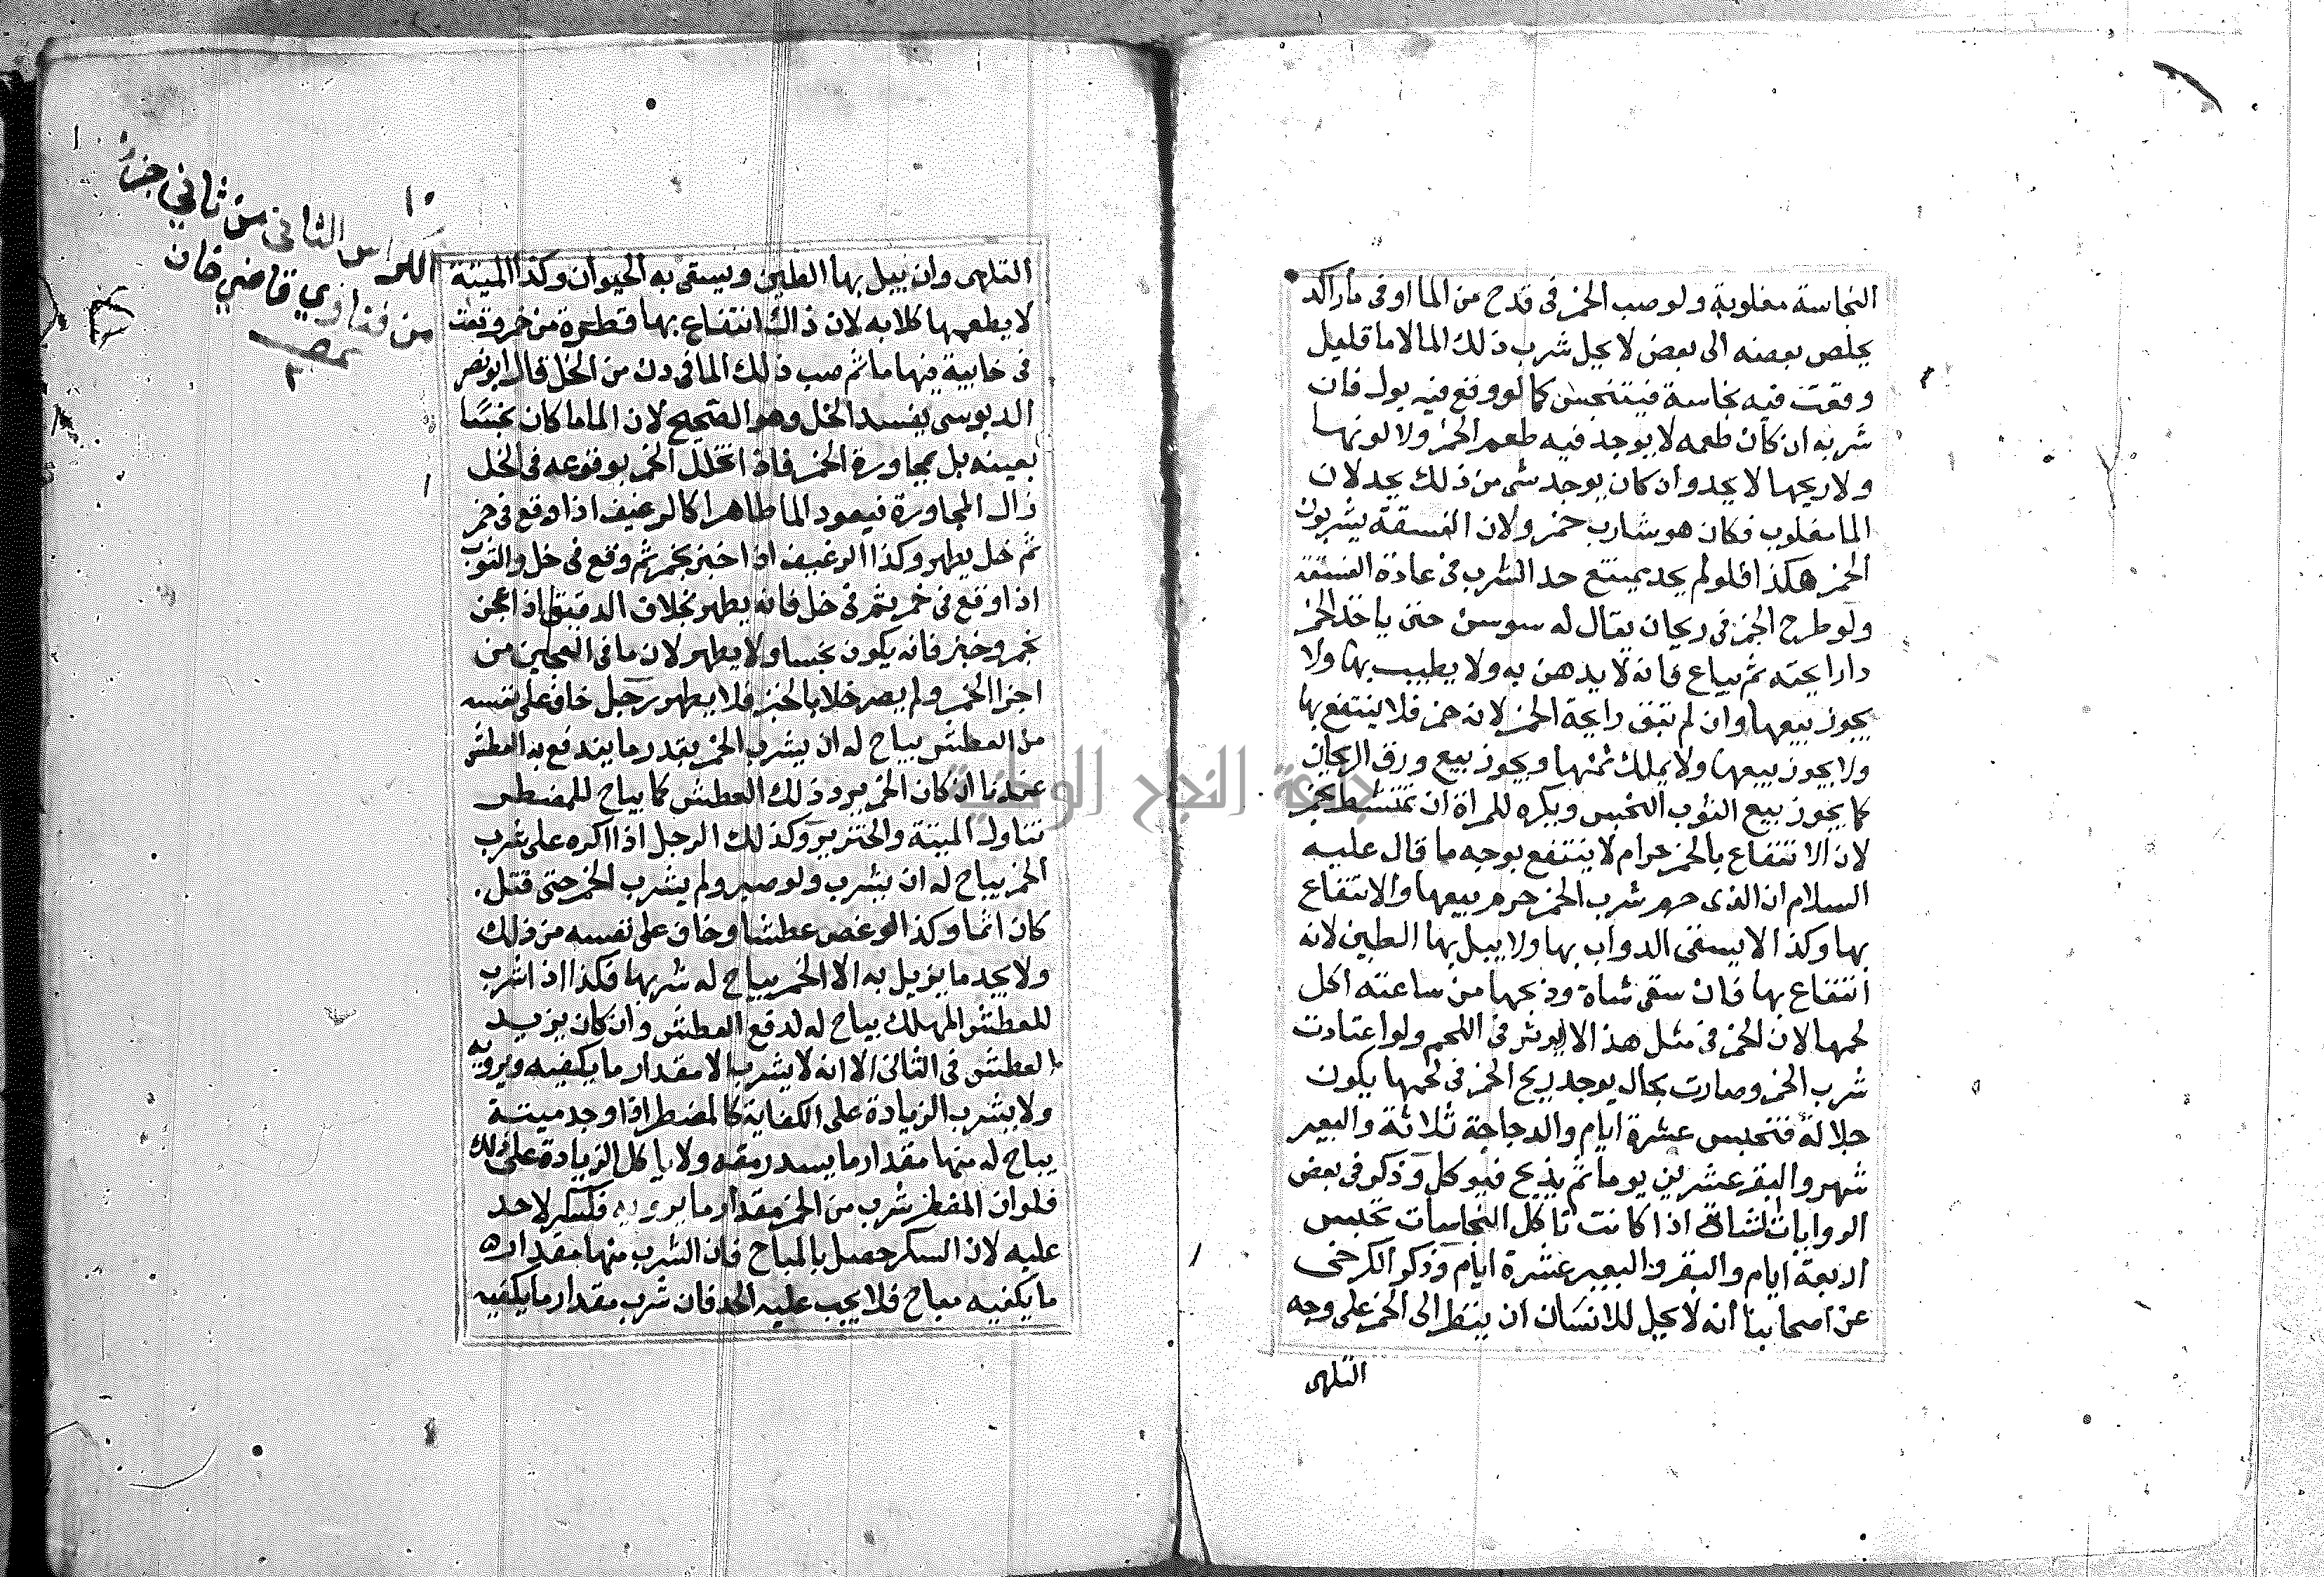 النجاسة مغلوبة ولو صب الخمر فى قدح من الما او فى ما راكد
يخلص بعضه الى بعض لا يحل شرب ذلك الما لا ما قليل
وقعت فيه نجاسة فيتنجس كما لو وقع فيه بول فان
شربه ان كان طعمه لا يوجد فيه طعم الخمر ولا لونها
ولا ريحها لا يحد وان كان يوجد شى من ذلك يحد لان
الما مغلوب فكان هو شارب خمر ولان الفسقة يشربون
الخمر هكذا فلو لم يحد يمتنع حد الشرب فى عادة الفسقة
ولو طرح الخمر فى ريحان يقال له سوسن حتى ياخذ الخمر
دا رايحته ثم يباع فانه لا يدهن به ولا يطيب بها ولا
يجوز بيعها وان لم تبق رايحة الخمر لانه خمر فلا ينتفع بها
ولا يجوز بيعها ولا يملك ثمنها ويجوز بيع ورق الريحان
كما يجوز بيع الثوب النجس ويكره للمراة ان تمتشط بخمر
لان الانتفاع بالخمر حرام لا ينتفع بوجه ما قال عليه
السلام ان الذى حرم شرب الخمر حرم بيعها والانتفاع
بها وكذا لا يسقى الدواب بها ولا يبل بها الطين لانه
انتفاع بها فان سقى شاة وذبحها من ساعته اكل
لحمها لان الخمر فى مثل هذا لا يوثر فى اللحم ولو اعتادت
شرب الخمر وصارت بحال يوجد ريح الخمر فى لحمها يكون
جلالة فتحبس عشرة ايام والدجاجة ثلاثة والبعير
شهر والبقر عشرين يوما ثم يذبح فيوكل وذكر فى بعض
الروايات الشاة اذا كانت تاكل النجاسات تحبس
اربعة ايام والبقر والبعير عشرة ايام وذكر الكرخى
عن اصحابنا انه لا يحل للانسان ان ينظر الى الخمر على وجه
التلهى
١٠
الكراس الثانى من ثاني جزؤ
من فتاوي قاضي خان
التلهى وان يبل بها الطين ويسقى به الحيوان وكذا الميتة
لا يطعمها كلابه لان ذالك انتفاع بها قطرة من خمر وقعت
فى خابية فيها ما ثم صب ذلك الما فى دن من الخل قال ابو نصر
الدبوسى يفسد الخل وهو الصحيح لان الما ما كان نجسًا
بعينه بل بمجاورة الخمر فاذا تخلل الخمر بوقوعه فى الخل
زال المجاورة فيعود الما طاهرا كالرغيف اذا وقع فى خمر
ثم خل يطهر وكذا الرغيف اذا خبز بخمر ثم وقع فى خل والثوب
اذا وقع فى خمر ثم فى خل فانه يطهر بخلاف الدقيق اذا عجن
بخمر وخبز فانه يكون نجسا ولا يطهر لان ما فى العجين من
اجزا الخمر ولم يصر خلا بالخبز فلا يطهر رجل خاف على نفسه
من العطش يباح له ان يشرب الخمر بقدر ما يندفع به العطش
عندنا ان كان الخمر يرد ذلك العطش كما يباح للمضطر
تناول الميتة والخنزير وكذلك الرجل اذا اكره على شرب
الخمر يباح له ان يشرب ولو صبر ولم يشرب الخمر حتى قتل
كان اثما وكذا لو غص عطشا وخاف على نفسه من ذلك
ولا يجد ما يزيل به الا الخمر يباح له شربها فكذا اذا شرب
للعطش المهلك يباح له لدفع العطش وان كان يزيد
العطش فى الثانى الا انه لا يشرب الا مقدار ما يكفيه ويرويه
ولا يشرب الزيادة على الكفاية كالمضطر اذا وجد ميتة
يباح له منها مقدار ما يسد رمقه ولا ياكل الزيادة على ذلك
فلو ان المضطر شرب من الخمر مقدار ما يرويه فسكر لا حد
عليه لان السكر حصل بالمباح فان الشرب منها مقدار
ما يكفيه مباح فلا يجب عليه الحد فان شرب مقدار ما يكفيه
جامعة النجاح الوطنية